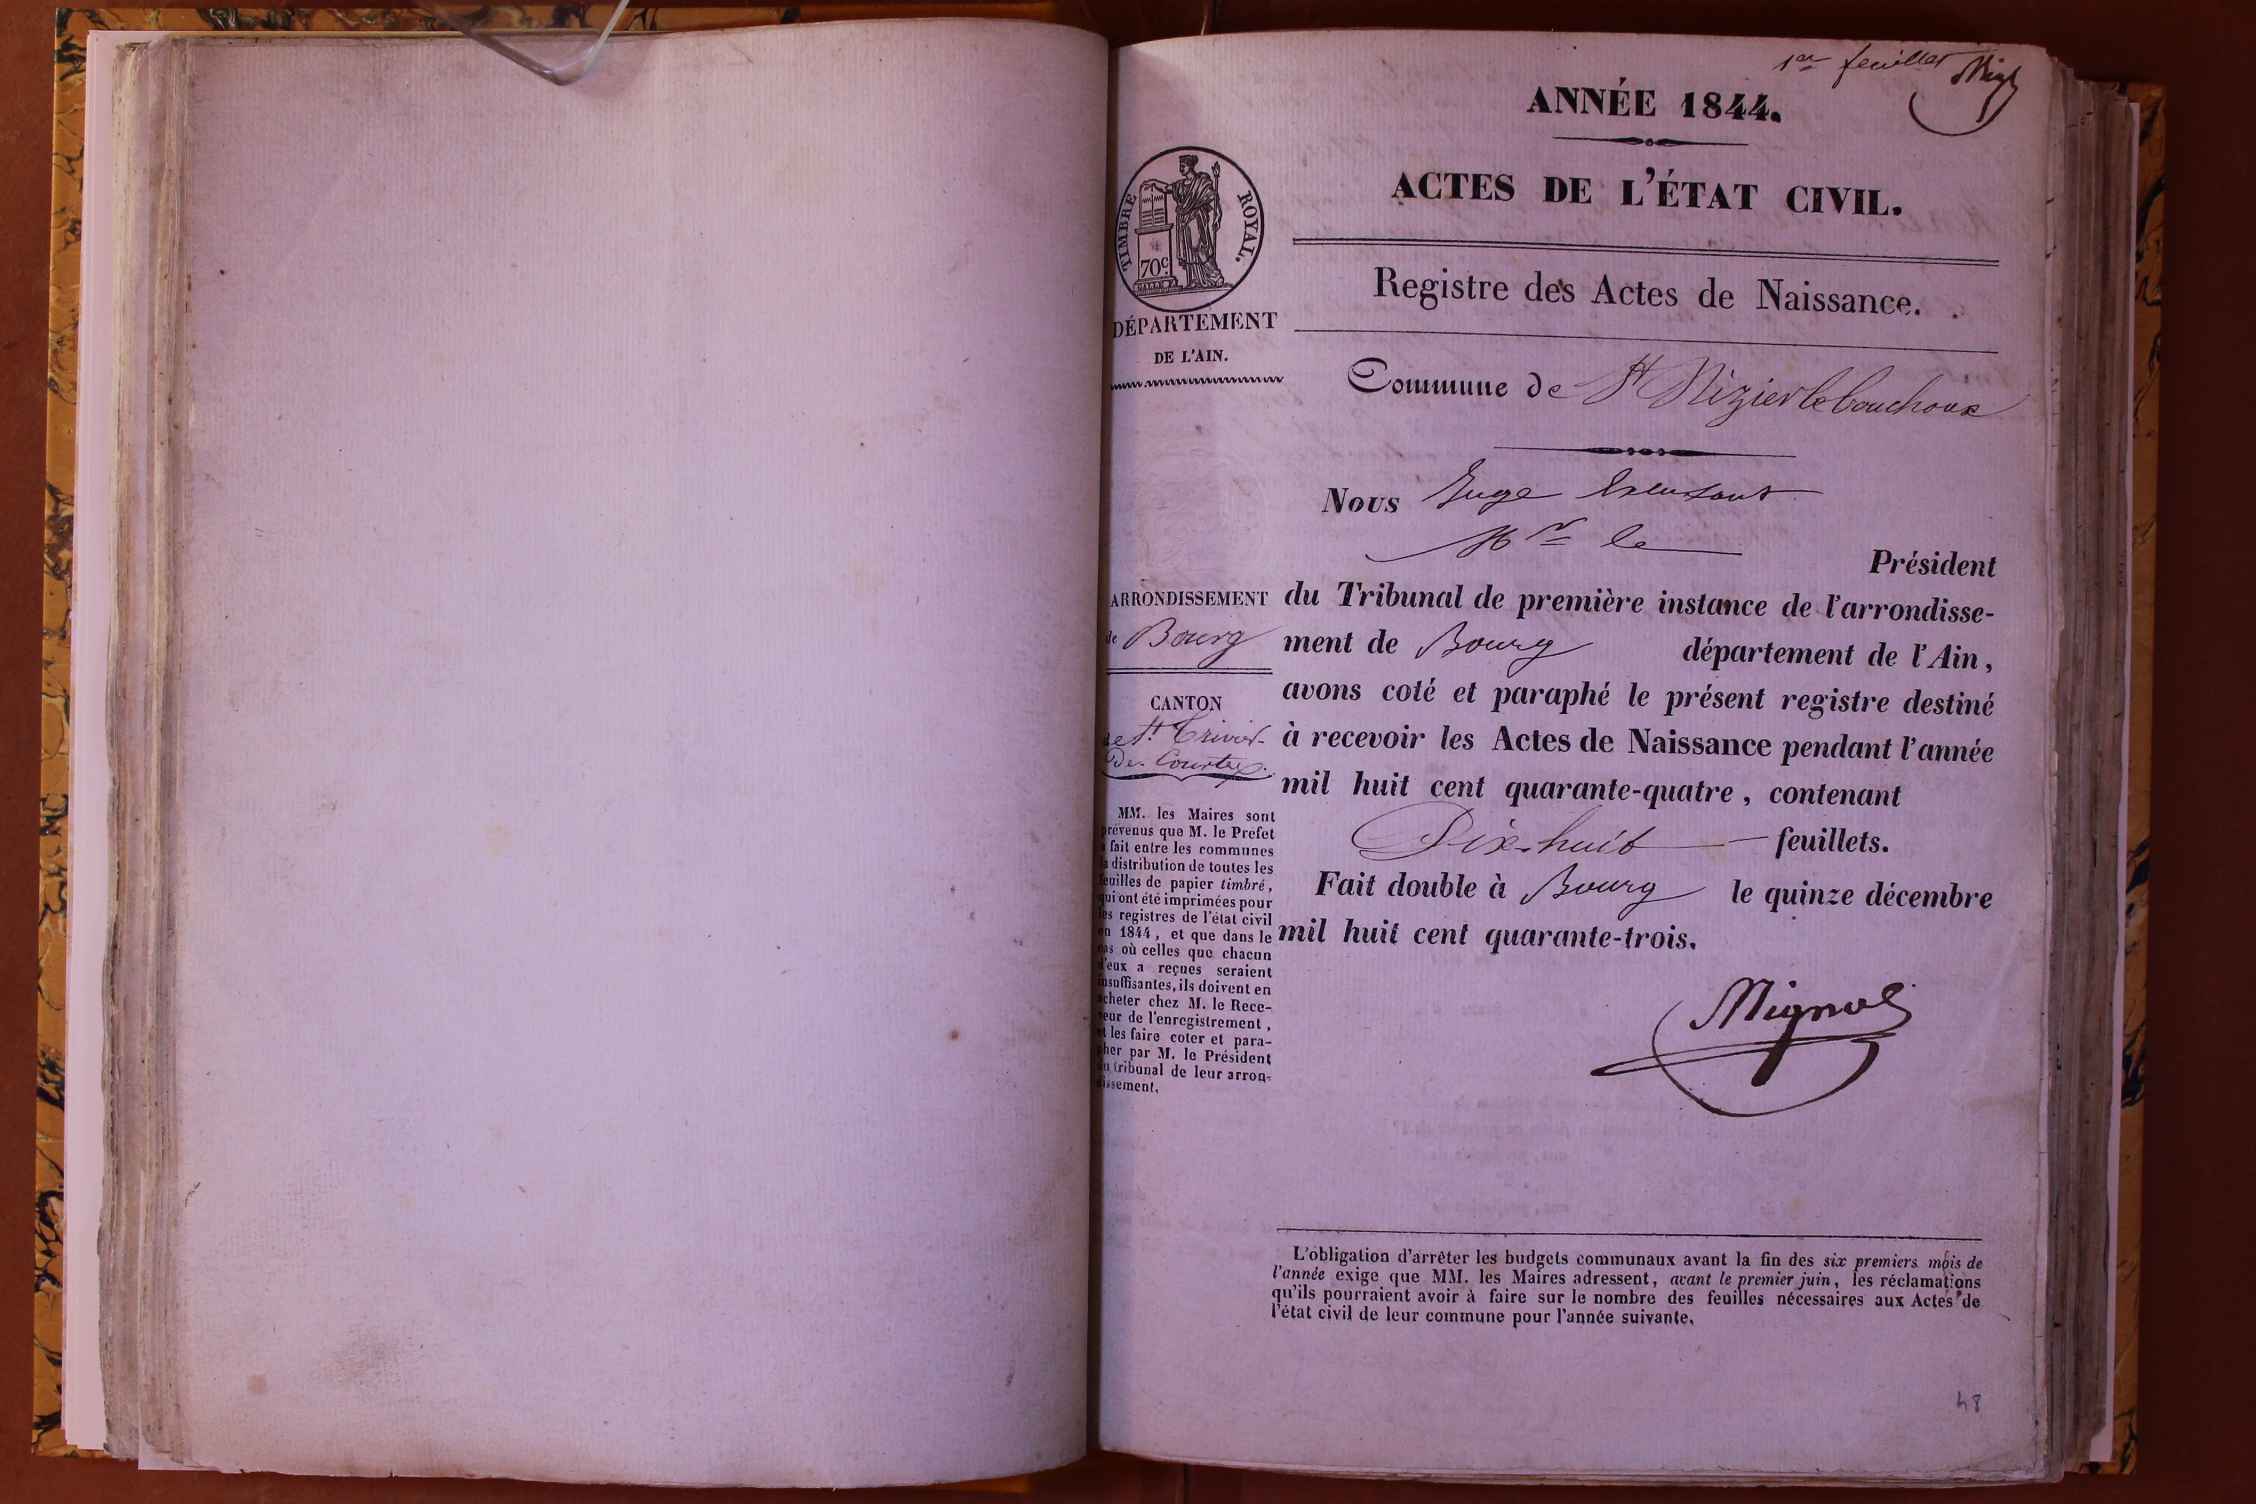 1er feuillet Mig
ANNÉE 1844.
ACTES DE L'ÉTAT CIVIL.
TIMBRE ROYAL.
70c
DÉPARTEMENT
DE L'AIN.
Registre des Actes de Naissance.
Commune de St Nizier le bouchoux
Nous Juge
Mr le
Président
ARRONDISSEMENT
de Bourg
CANTON
de St. Trivier
De Courtes
du Tribunal de première instance de l'arrondisse-
ment de Bourg département de l'Ain,
avons coté et paraphé le présent registre destiné
à recevoir les Actes de Naissance pendant l'année
mil huit cent quarante-quatre, contenant
Dix-huit feuillets.
Fait double à Bourg le quinze décembre
mil huit cent quarante-trois.
MM. les Maires sont
prévenus que M. le Prefet
a fait entre les communes
la distribution de toutes les
feuilles de papier timbré,
qui ont été imprimées pour
les registres de l'état civil
en 1844, et que dans le
cas où celles que chacun
d'eux a reçues seraient
insuffisantes, ils doivent en
acheter chez M. le Rece-
veur de l'enregistrement,
et les faire coter et para-
pher par M. le Président
du tribunal de leur arron-
dissement.
Mignot
L'obligation d'arrêter les budgets communaux avant la fin des six premiers mois de
l'année exige que MM. les Maires adressent, avant le premier juin, les réclamations
qu'ils pourraient avoir à faire sur le nombre des feuilles nécessaires aux Actes de
l'état civil de leur commune pour l'année suivante.
48